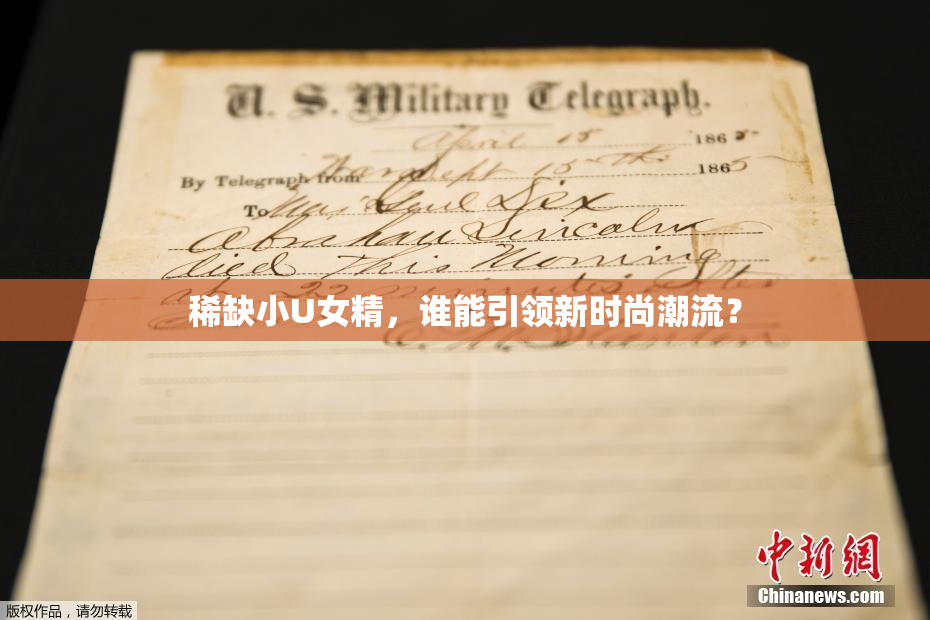 U. S. Military Telegraph.
April 15 1865
By Telegraph from War Dept 15th 1865
To Maj Genl Dix
Abraham Lincoln
died This Morning
at 22 minutes after
稀缺小U女精，谁能引领新时尚潮流？
中新网
Chinanews.com
版权作品，请勿转载